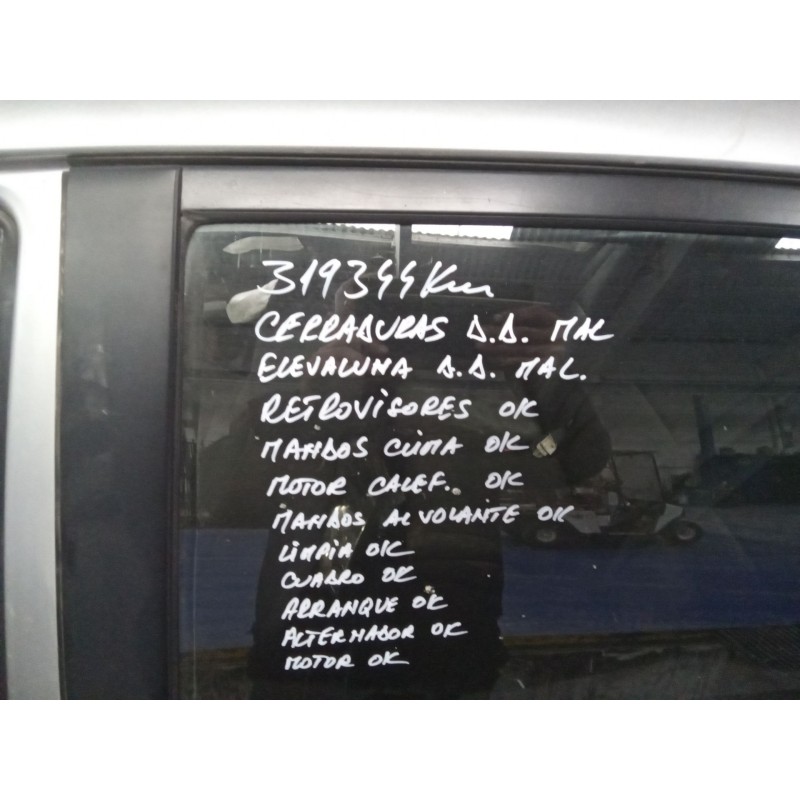 319344Km
CERRADURAS D.D. MAL
ELEVALUNA D.D. MAL.
RETROVISORES OK
MANDOS CLIMA OK
MOTOR CALEF. OK
MANDOS AL VOLANTE OK
LIMPIA OK
CUADRO OK
ARRANQUE OK
ALTERNADOR OK
MOTOR OK